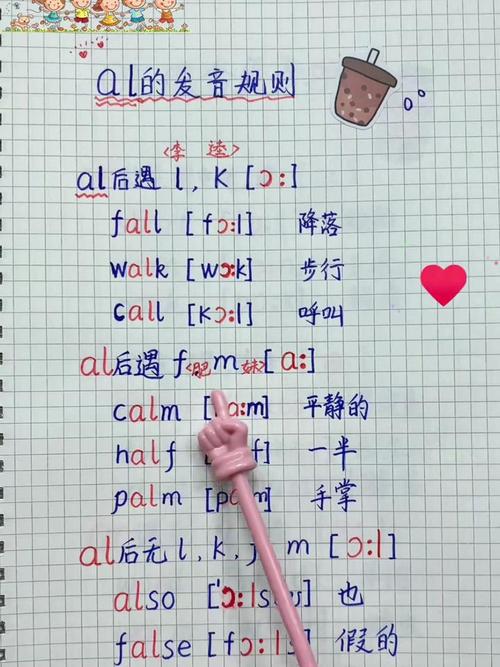 al的发音规则
<李 逵>
al后遇 l, k [ɔ:]
fall [fɔ:l] 降落
walk [wɔ:k] 步行
call [kɔ:l] 呼叫
al后遇 f<肥>m<妹>[ɑ:]
calm [ɑ:m] 平静的
half 一半
palm 手掌
al后无 l, k, m [ɔ:l]
also 也
false [fɔ:l 假的